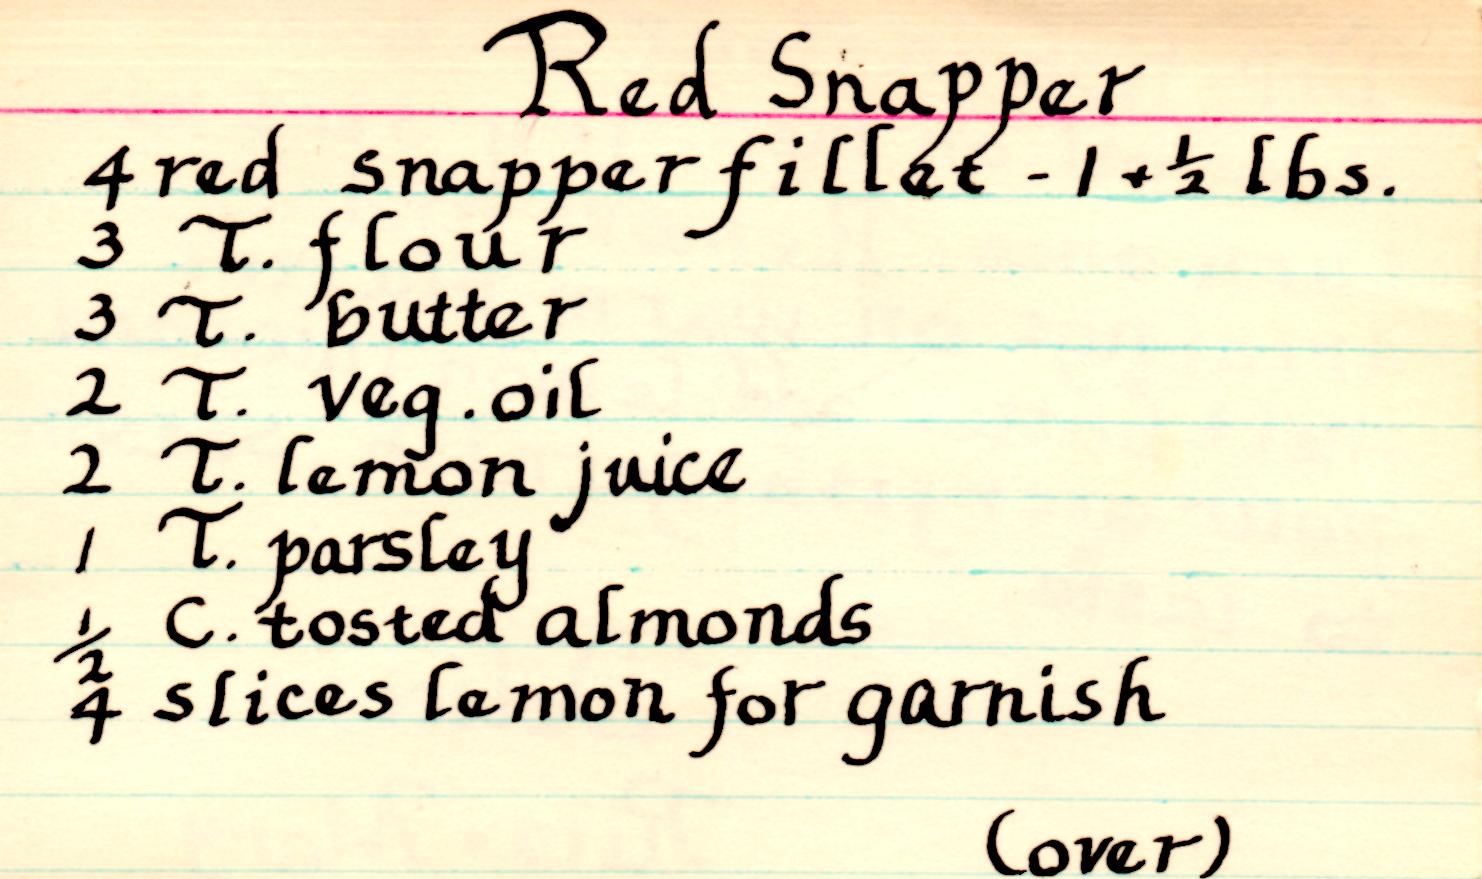 Red Snapper
4 red snapper fillet - 1 + 1/2 lbs.
3 T. flour
3 T. butter
2 T. veg. oil
2 T. lemon juice
1 T. parsley
1/2 C. tosted almonds
4 slices lemon for garnish
(over)